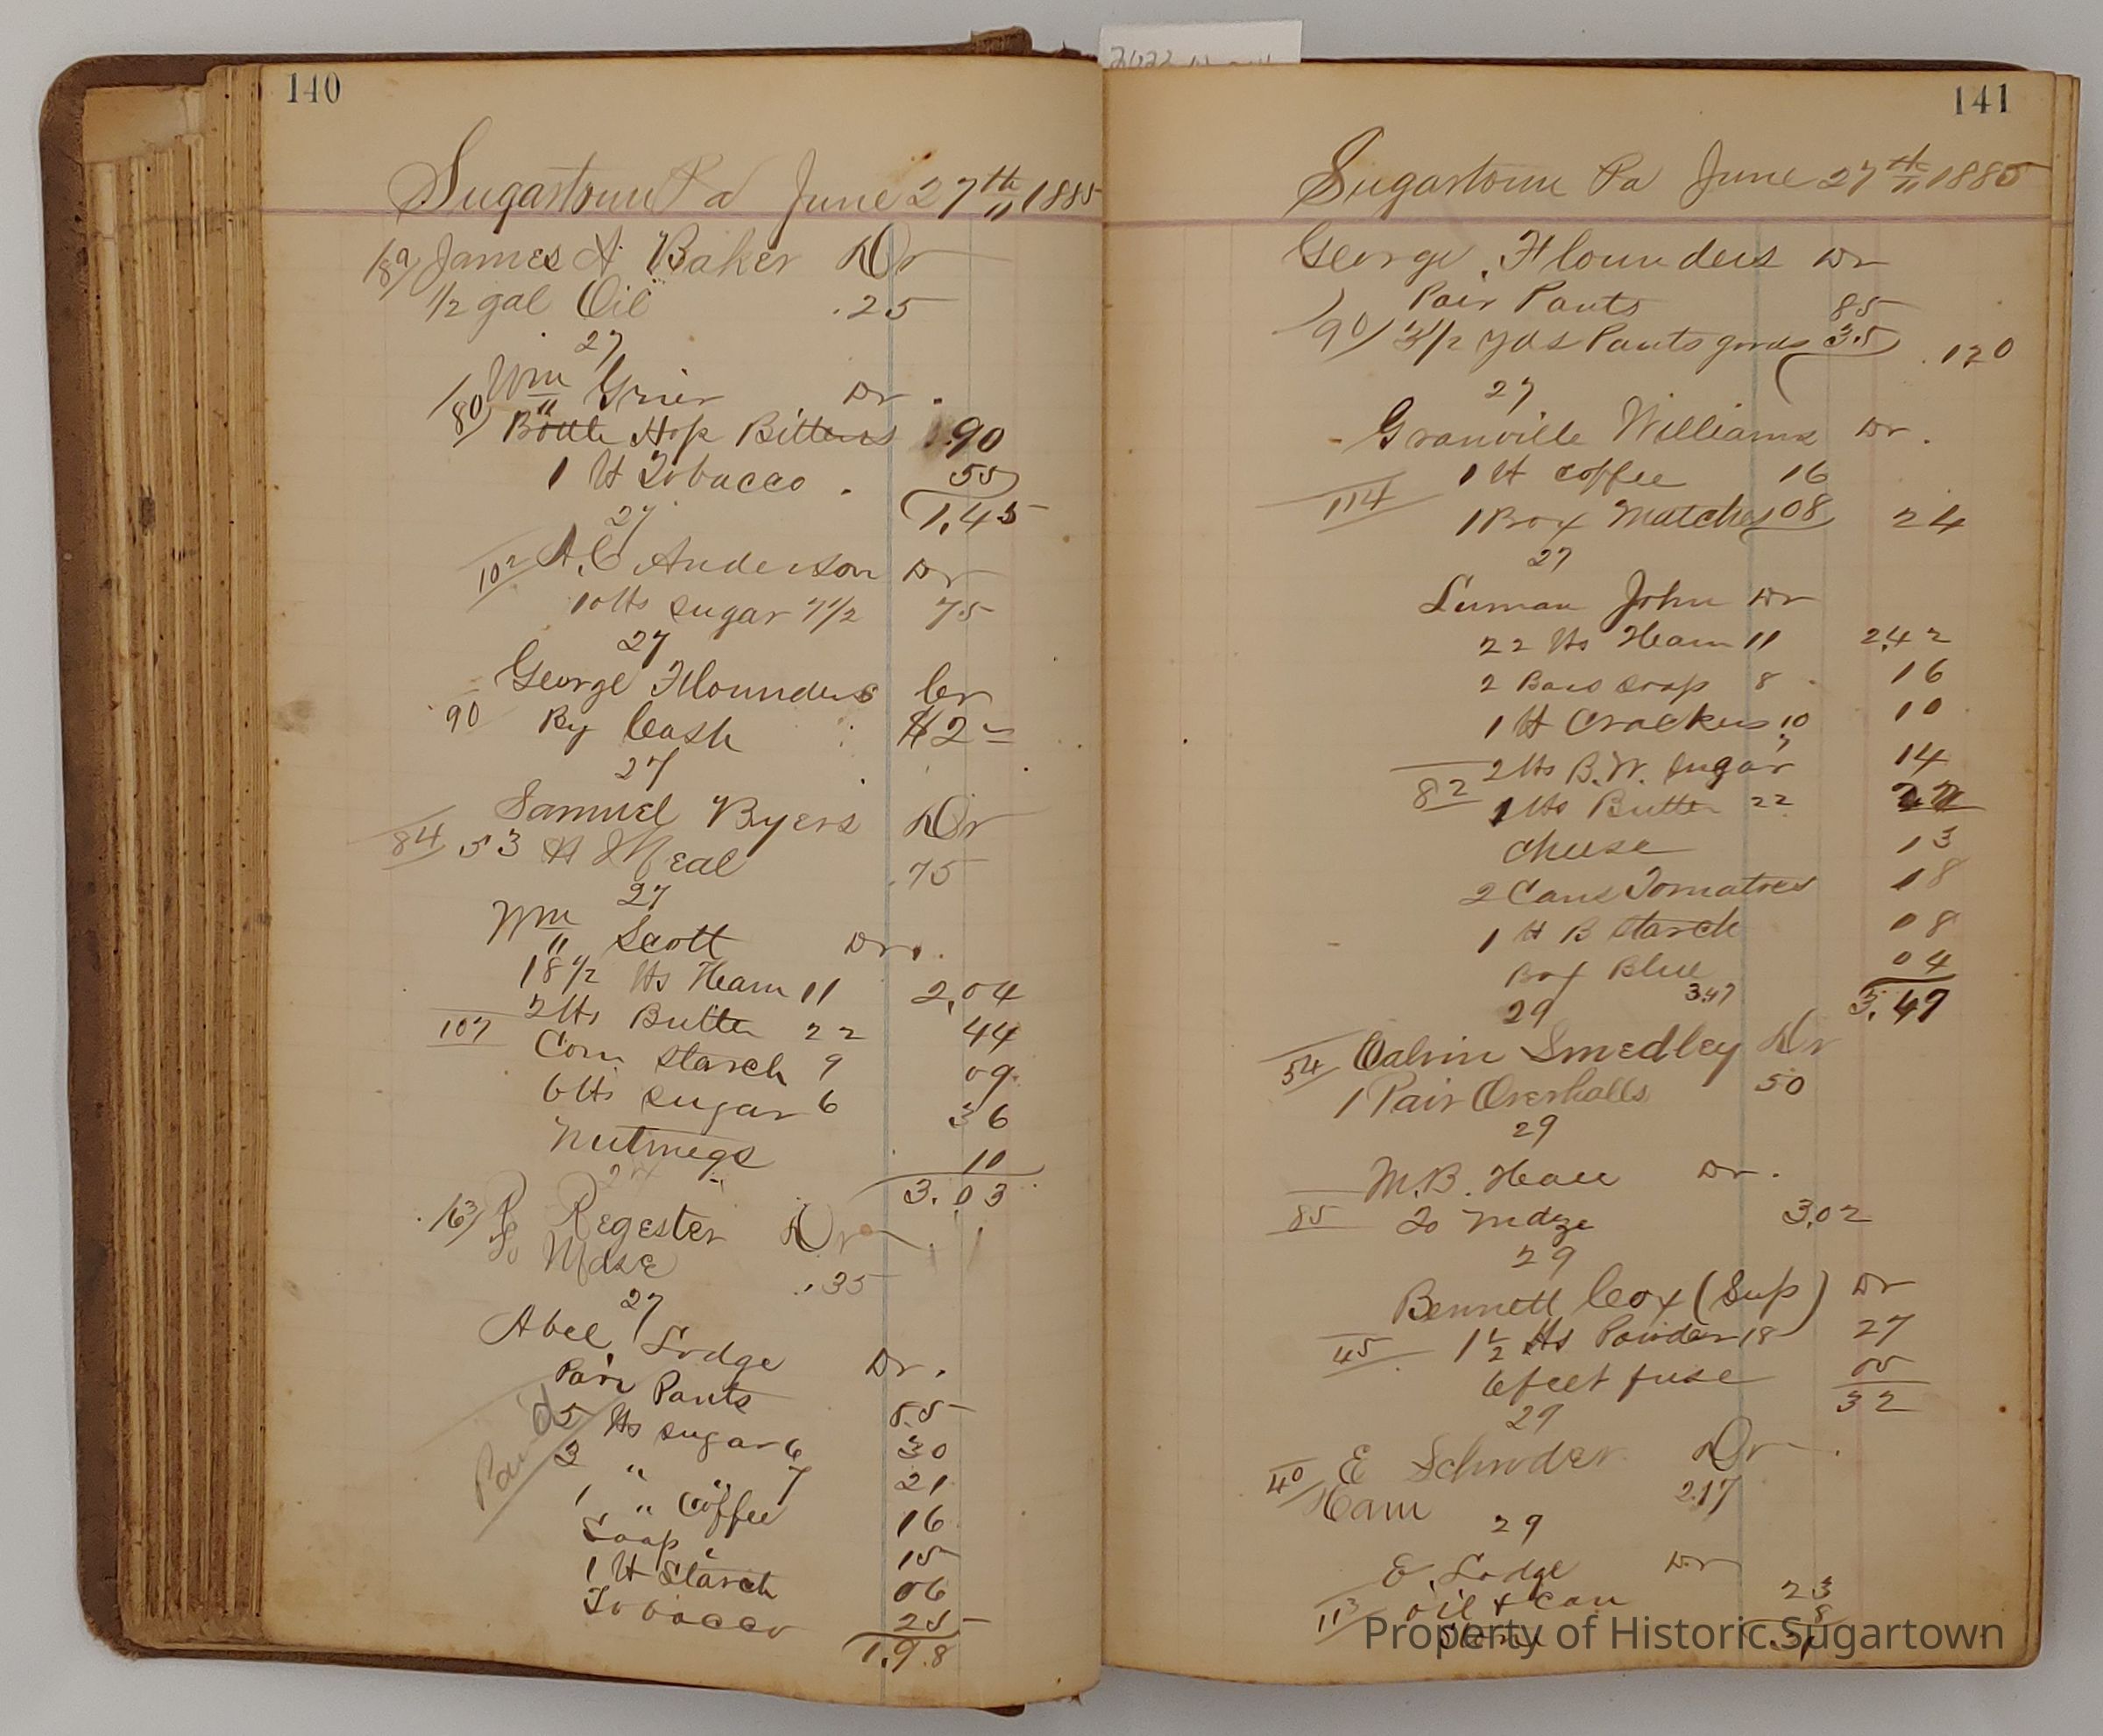 140
Sugartown Pa June 27th 1885
189 James A. Baker Dr
1/2 gal Oil .25
27
180 Wm Grier Dr.
Bottle Hop Bitters .90
1 lb Tobacco. 55
1,45
27
102 A. C. Anderson Dr
10 lbs sugar 7 1/2 75
27
George Flounders Cr
90 By Cash $2 =
27
Samuel Byers Dr
84 53 lb Meal .75
27
Wm Scott Dr.
18 1/2 lbs Ham 11 2,04
2 lbs Butter 22 44
107
Corn Starch 9 09
6 lbs sugar 6 36
Nutmegs 10
3.03
27
163 R Regester Dr
To Mdse .35
27
Abel Lodge Dr.
Pair Pants 85
Paid
5 lbs sugar 6 30
3 " " 7 21
1 " Coffee 16
Soap 15
1 lb Starch 06
Tobacco 25
1.98
141
Sugartown Pa June 27th 1885
George Flounders Dr
Pair Pants 85
90 3 1/2 yds Pants goods 35 .120
27
Granville Williams Dr.
1 lb coffee 16
114
1 Box Matches 08 24
27
Luman John Dr
22 lbs Ham 11 2,42
2 Bars soap 8 16
1 lb Crackers 10 10
2 lbs B.W. sugar 7 14
82
1 lbs Butter 22 22
Cheese 13
2 Cans Tomatoes 18
1 lb B Starch 08
Box Blue 04
3.47 3.47
29
54 Calvin Smedley Dr
1 Pair Overhalls 50
29
M.B. Hall Dr.
85 To mdze 3,02
29
Bennett Cox (Sup) Dr
45 1 1/2 lbs Powder 18 27
6 feet fuse 05
32
29
40 E Schroder Dr
Ham 2.17
29
E. Lodge Dr
113 oil & Can 23
8
Property of Historic Sugartown